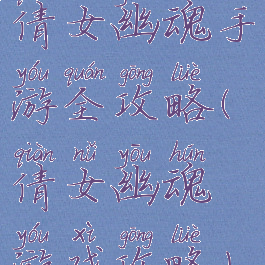 倩女幽魂手
yóu quán gōng lüè
游全攻略(
qiàn nǚ yōu hún
倩女幽魂
yóu xì gōng lüè
游戏攻略)